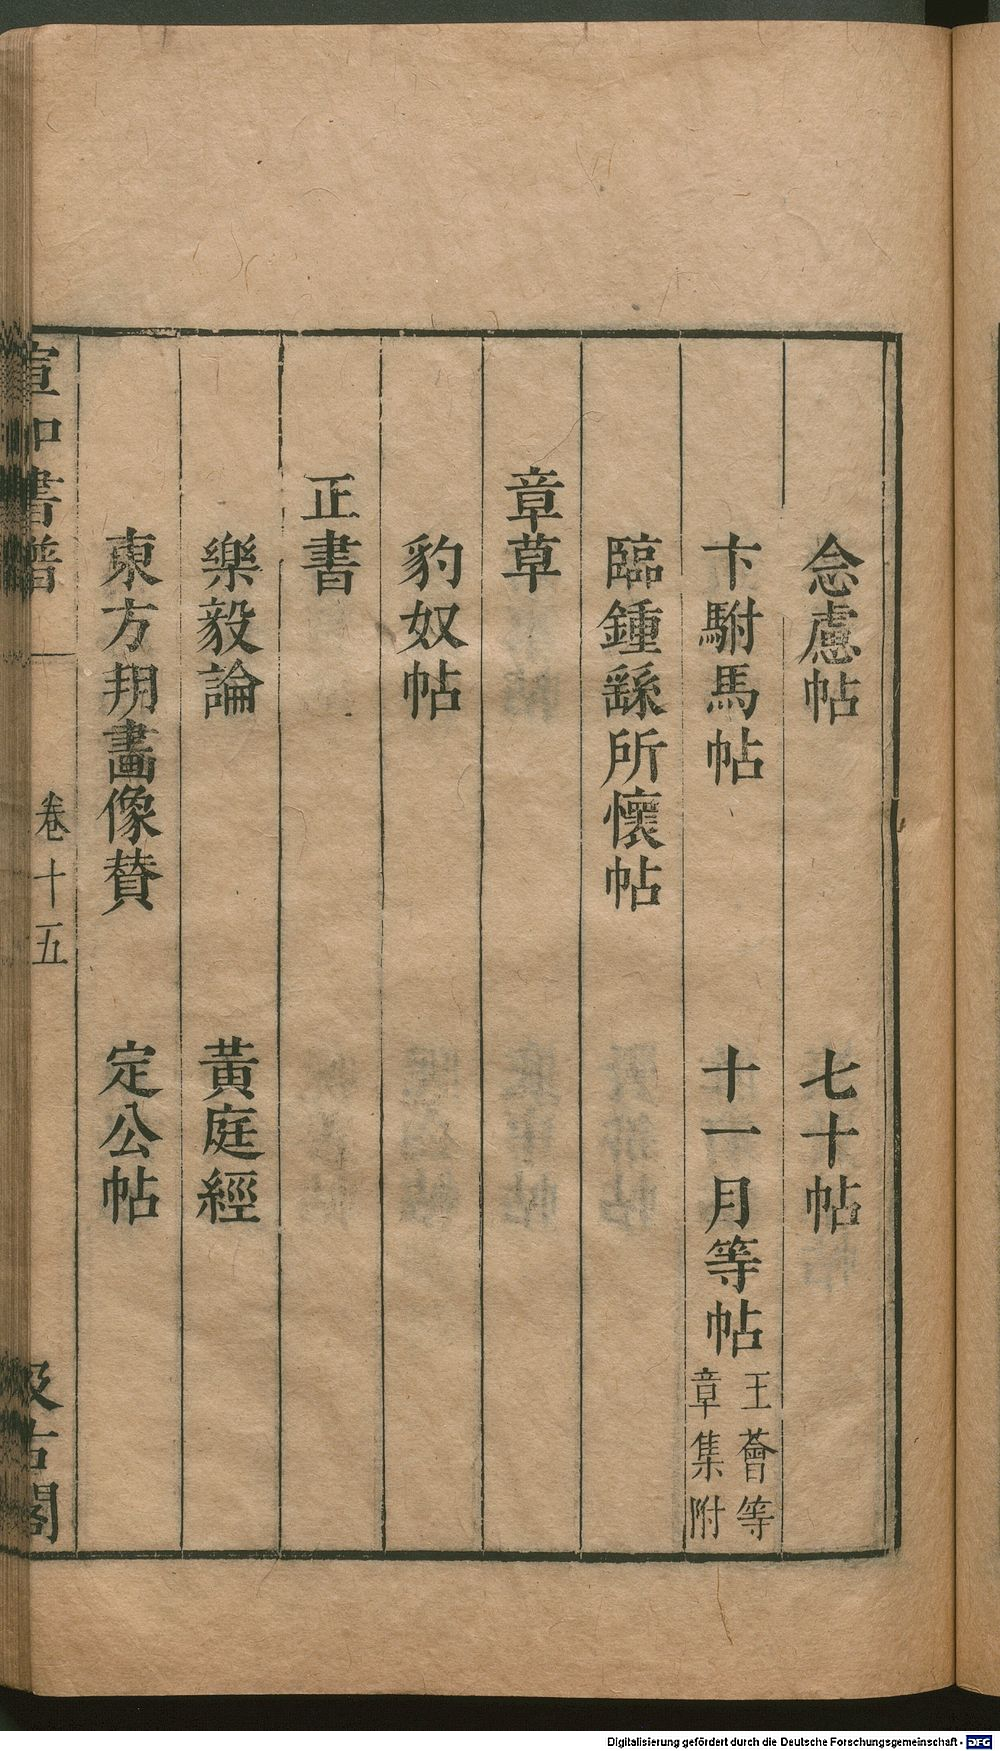 念慮帖　七十帖
卞駙馬帖　十一月等帖　王薈等
章集附
臨鍾繇所懷帖
章草
豹奴帖
正書
樂毅論　黃庭經
東方朔畫像贊　定公帖
宣和書譜　卷十五　汲古閣
Digitalisierung gefördert durch die Deutsche Forschungsgemeinschaft - DFG